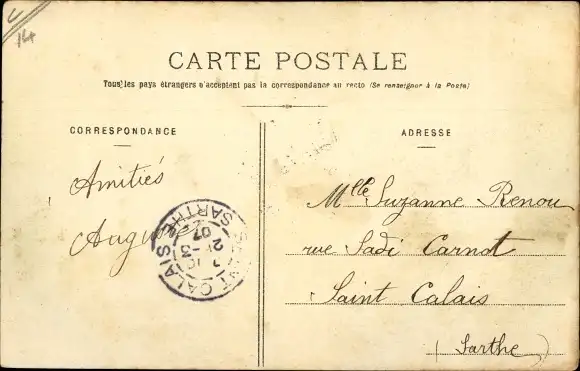 CARTE POSTALE
Tous les pays étrangers n'acceptent pas la correspondance au recto (Se renseigner à la Poste)
CORRESPONDANCE
ADRESSE
Amitiés
Mlle Suzanne Renou
rue Sadi Carnot
Saint Calais
(Sarthe)
SAINT CALAIS
SARTHE
07